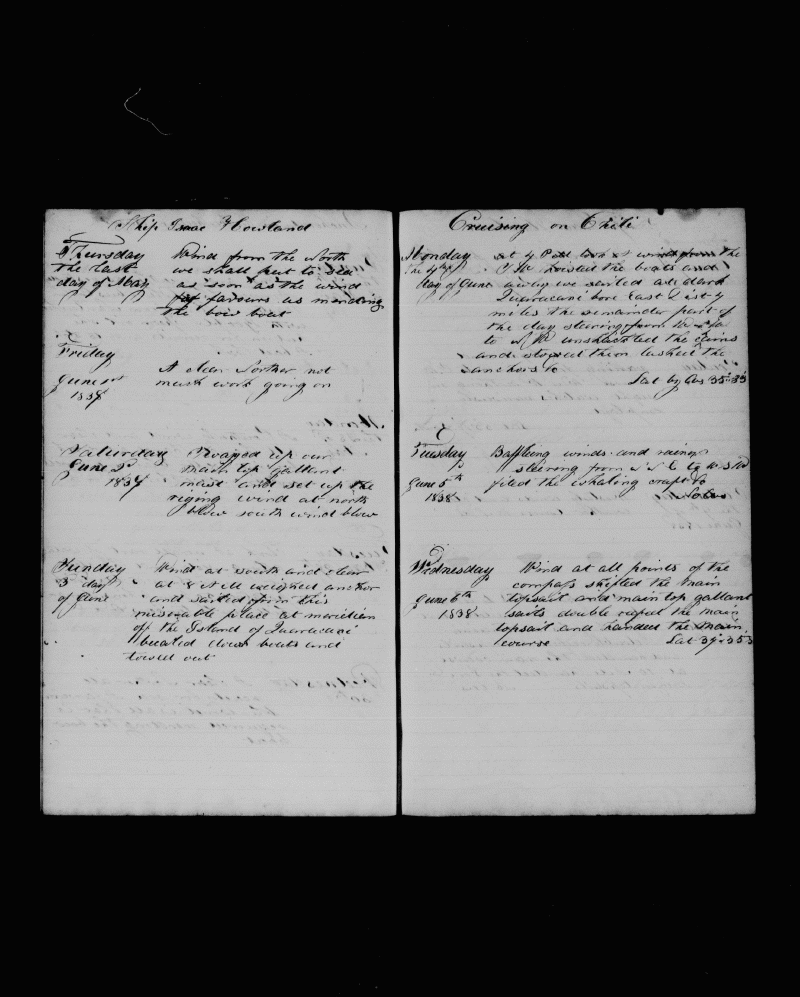 Ship Isaac Howland
Thursday
the last
day of May
Wind from the North
we shall put to sea
as soon as the wind
favours us mending
the bow boat
Friday
June 1st
1838
A clear Norther not
much work going on
Saturday
June 2d
1838
Swayed up our
main top gallant
mast and set up the
riging wind at north
blow south wind blow
Sunday
3 day
of June
Wind at south and clear
at 8 AM weighed anchor
and sailed from this
miserable place at meridian
off the Island of
down boats and
towed out
Cruising on Chili
Monday
The 4th
day of June
at 4 P M wind from the
hoisted the boats and
away we sailed at dark
bore East Dist 4
miles the remainder part of
the day stearing from
to unshackled the chains
and stoped them lashed the
anchors &c
Lat by Obs
Tuesday
June 5th
1838
Baffling winds and rainy
stearing from to W.S.W
filed the whaling craft &c
No Obs
Wednesday
June 6th
1838
Wind at all points of the
compass shifted the main
topsail and main top gallant
sails double reefed the main
topsail and handed the main
course
Lat